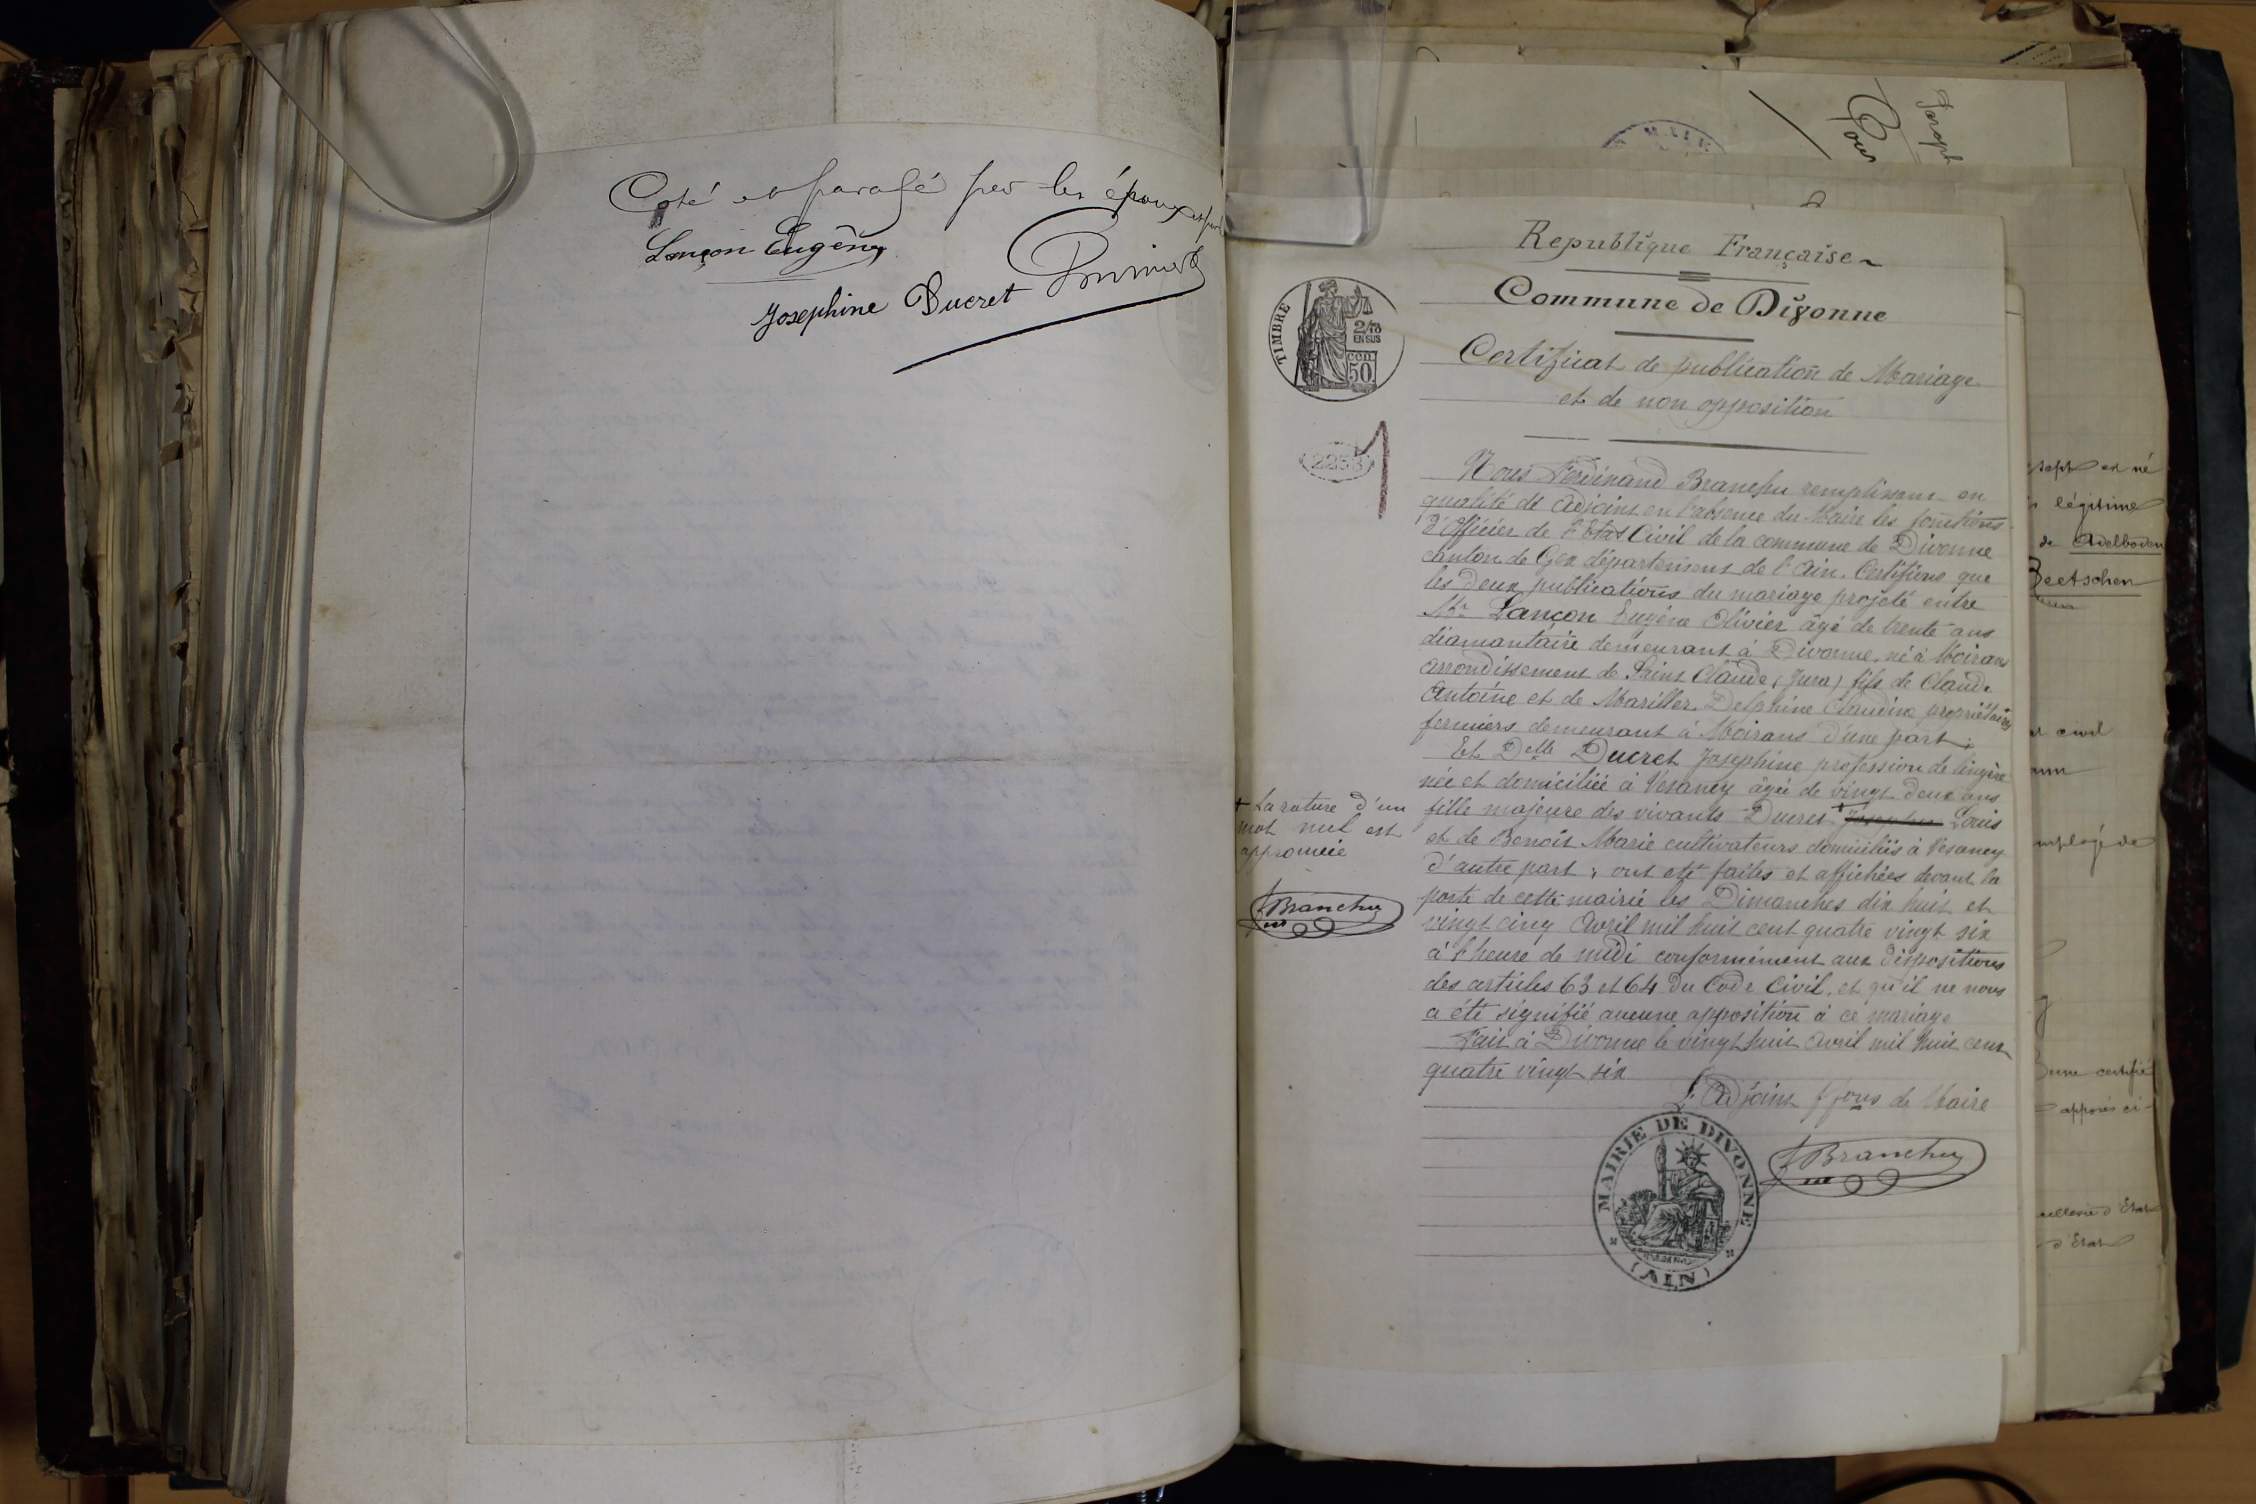 Coté et parafé par les époux et par
Lançon Eugène
Josephine Ducret
Joseph
Pour
Republique Française
Commune de Divonne
TIMBRE
2/10
EN SUS
50
CEN
Certificat de publication de Mariage
et de non opposition
2258
1
Nous Ferdinand Branchu remplissant en
qualité de Adjoint en l'absence du Maire les fonctions
d'Officier de l'Etat Civil de la commune de Divonne
canton de Gex département de l'Ain. Certifions que
les deux publications du mariage projeté entre
Mr Lançon Eugène Olivier âgé de trente ans
diamantaire demeurant à Divonne, né à Moirans
arrondissement de Saint Claude (Jura) fils de Claude
Antoine et de Mariller Delphine Claudine propriétaires
fermiers demeurant à Moirans d'une part;
Et Delle Ducret Josephine profession de lingère
née et domiciliée à Vesancy âgée de vingt deux ans
fille majeure des vivants Ducret + Louis
et de Benoit Marie cultivateurs domiciliés à Vesancy
d'autre part; ont été faites et affichées devant la
porte de cette mairie les Dimanches dix huit et
vingt cinq Avril mil huit cent quatre vingt six
à l'heure de midi conformément aux dispositions
des articles 63 et 64 du Code Civil, et qu'il ne nous
a été signifié aucune opposition à ce mariage
Fait à Divonne le vingt huit Avril mil huit cent
quatre vingt six
L'Adjoint ffons de Maire
+ La rature d'un
mot nul est
approuvée
Branchu
MAIRIE DE DIVONNE
(AIN)
Branchu
est né
légitime
de Adelboden
Beetschen
civil
employé de
certifié
apposés ci-
d'Etat
d'Etat